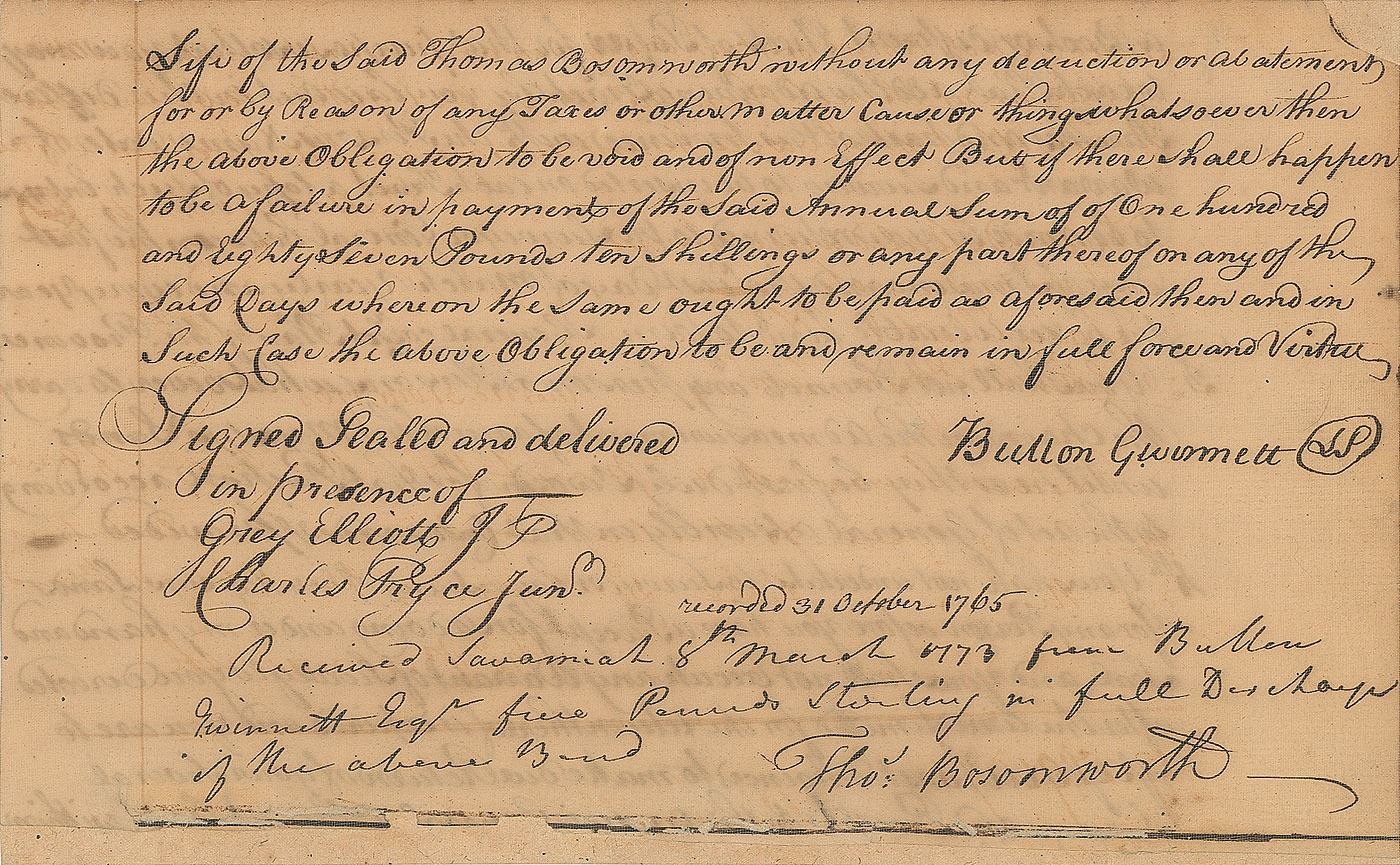 Life of the Said Thomas Bosomworth without any deduction or abatement
for or by Reason of any Taxes or other matter Cause or thing whatsoever then
the above Obligation to be void and of non Effect But if there shall happen
to be a failure in payment of the Said Annual Sum of of One hundred
and Eighty Seven Pounds ten Shillings or any part thereof on any of the
Said Days whereon the same ought to be paid as aforesaid then and in
Such Case the above Obligation to be and remain in full force and Virtue
Signed Sealed and delivered
in presence of
Grey Elliott JP
Charles Pryce Junr.
Button Gwinnett LS
recorded 31 October 1765
Received Savannah 8th March 1773 from Button
Gwinnett Esqr five Pounds Sterling in full Discharge
of the above Bond
Thos. Bosomworth